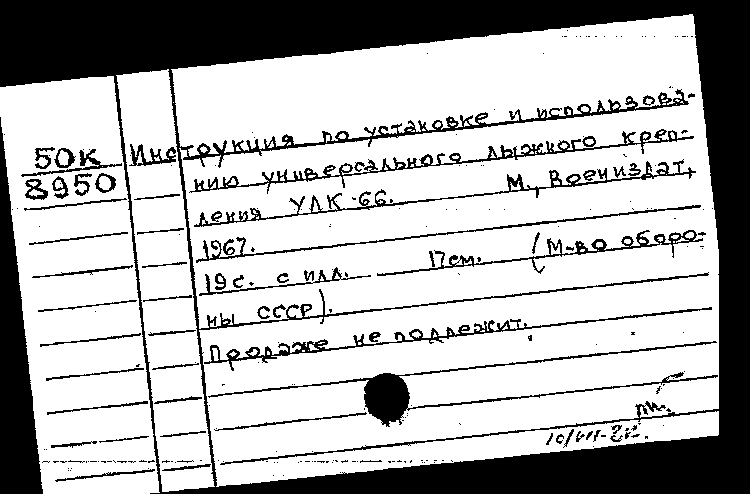 50к
8950
Инструкция по установке и использова-
нию универсального лыжного креп-
ления УЛК-66. М., Воениздат,
1967.
19с. с илл. 17см. (М-во оборо-
ны СССР).
Продаже не подлежит.